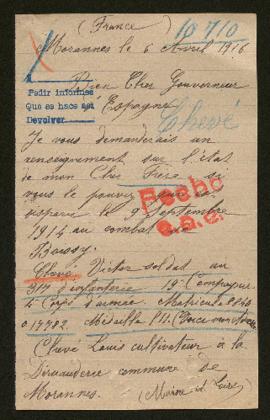 (France)
10710
Morannes le 6 Avril 1916
Bien Cher Gouverneur
Espagne
Pedir informes
Que se hace así
Devolver
Chevé
Je vous demanderais un
renseignement sur l'état
de mon Cher Frère si
vous le pouvez
disparu le 9 Septembre
1914 au combat de
Hecho
Victor soldat au
d'infanterie 19e Compagnie
4 Corps d'armée. Matricule
17782. Médaille
Louis cultivateur à la
commune de
Morannes. (Maine et Loire)